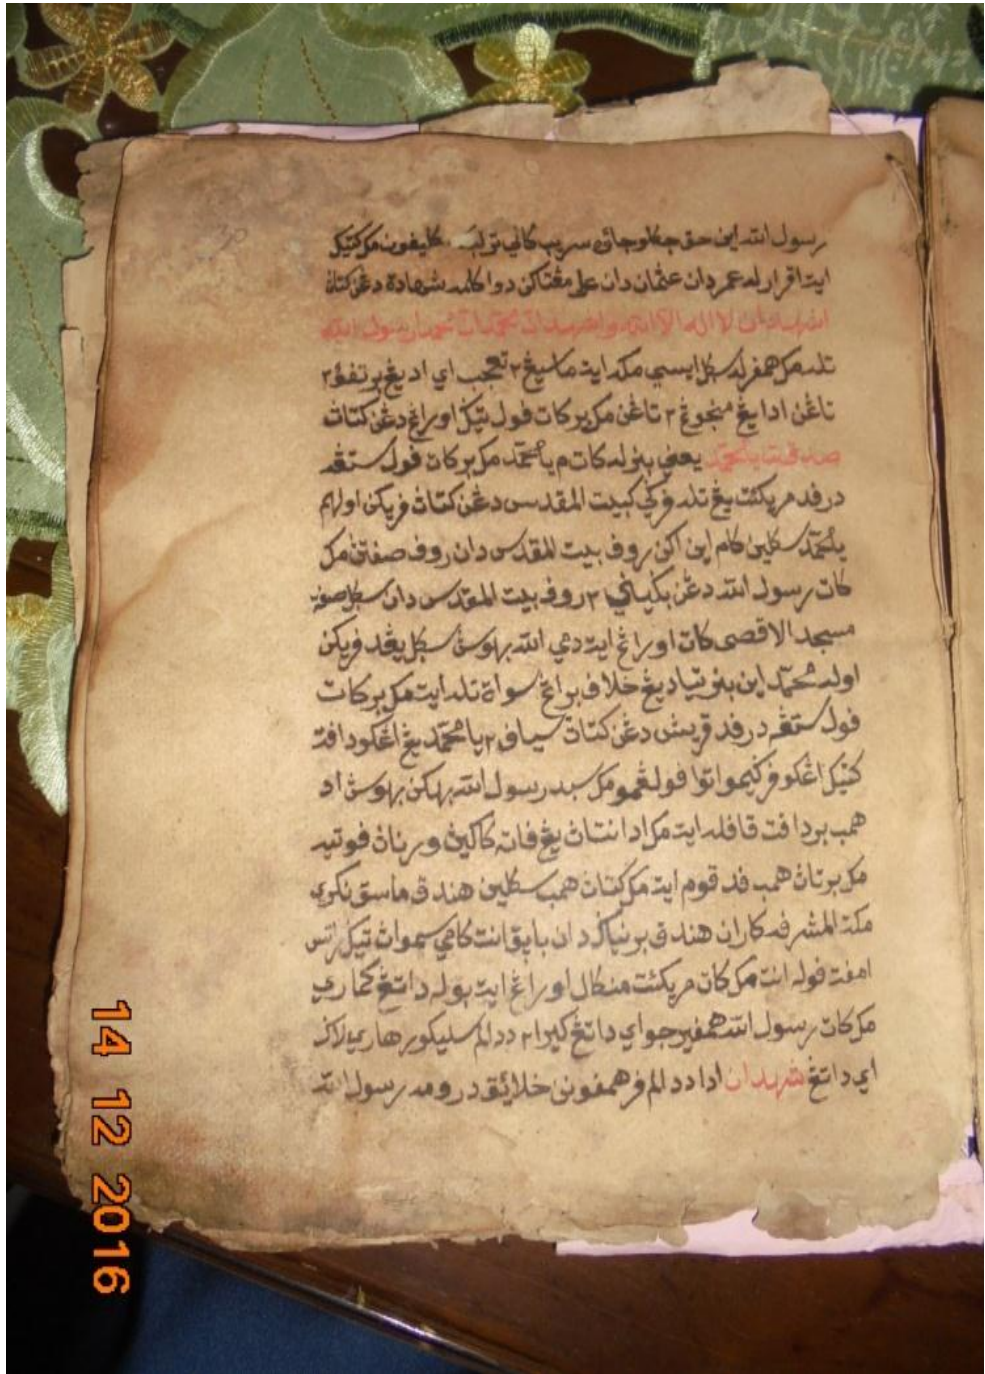 رسول الله اين حق جكلو جاڠن سريب كالي توليه كليفون مك تتكل
ايت اقرارله عمر دان عثمان دان علي مڠتاكن دوا كلمه شهادة دڠن كتان
اشهد ان لا اله الا الله واشهد ان محمدا رسول الله
تله مك همفرله سكل ايسي مكه ايت ماسيڠ٢ تعجب اي اد يڠ برتفق٢
تاڠن اد يڠ منجونجڠ٢ تاڠن مك بركات فول تيڬ اورڠ دڠن كتان
صدقت يا محمد يعني بنرله كات م يا محمد مك بركات فول ستڠه
درفد مريكئت يڠ تله فركي كبيت المقدس دڠن كتان فريكن اولهم
يا محمد سكلين كام اين اكن روف بيت المقدس دان روف صفتن مك
كات رسول الله دڠن بكياني٢ روف بيت المقدس دان سكل صفة
مسجد الاقصى كات اورڠ ايت دمي الله بهوسڽ سكل يڠد فريكن
اوله محمد اين بنر تياد يڠ خلاف بارڠ سواة تله ايت مك بركات
فول ستڠه درفد قريش دڠن كتان سياف٢ يا محمد يڠ اڠكو دافة
كتيك اڠكو فركيمو اتوا فولڠمو مك سبد رسول الله بهكن بهوسڽ اد
همب بردافت قافله ايت مك اد انتان يڠ فاته كاكين ورنان فوتيه
مك برتان همب فد قوم ايت مك كتان همب سكلين هندق ماسق نكري
مكة المشرفه كاران هندق برنياك دان باڽق انت كامي سموان تيڬ راتس
امفت فوله انت مك كات مريكئت منكال اورڠ ايت بوله داتڠ كماري
مك كات رسول الله همفير جو اي داتڠ كيرا٢ ددالم سليكور هاري لاك
اي داتڠ شهدان اد ددالم فرهمفونن خلائق درومه رسول الله
14 12 2016